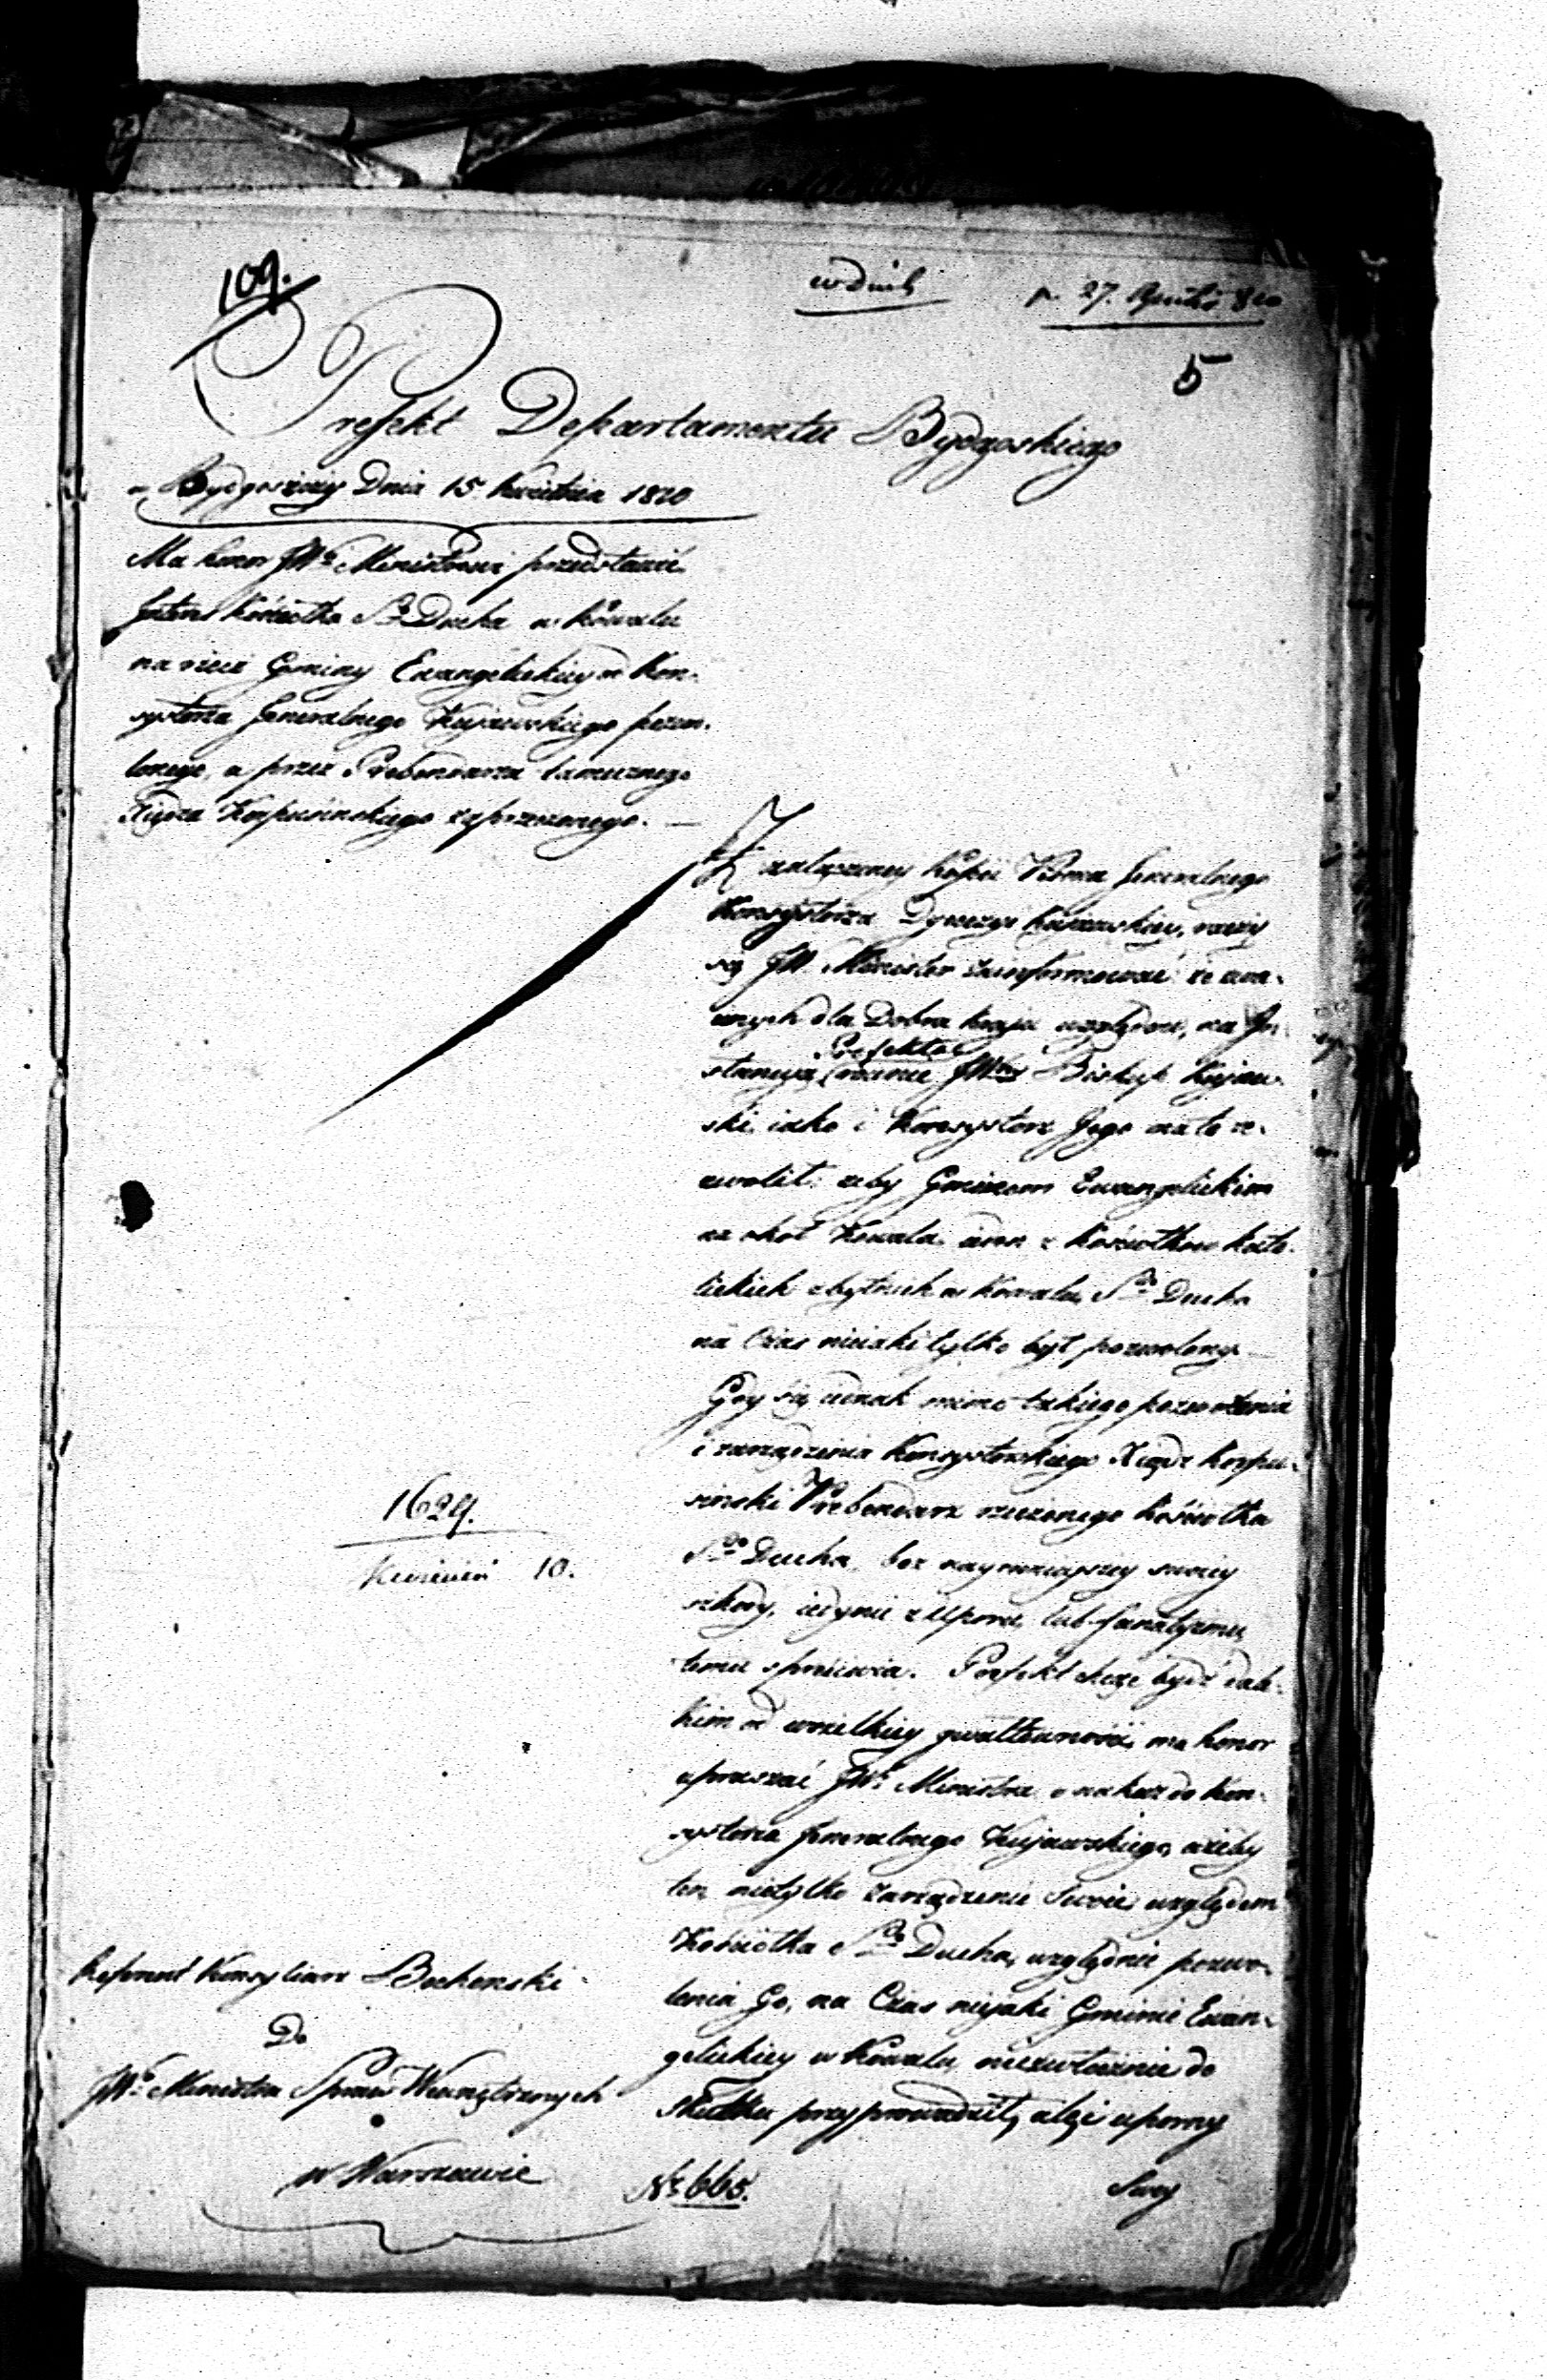 109.
p. 27. Aprilis 810
5
Prefekt Departamentu Bydgoskiego
w Bydgoszczy Dnia 15 Kwietnia 1810
Ma honor JWu Ministrowi przedstawić
Interes Kościołka So Ducha w Kowalu
na rzecz Gminy Ewangelickiey od Kon-
systorza Generalnego Kujawskiego pozwo-
lonego, a przez Prebendarza tamecznego
Xiędza Korpusińskiego zaprzeczonego. —
Z załączoney Kopii Pisma Generalnego
Konsystorza Dyecezyi Kujawskiey, raczy
się JW. Minister zainformować: że waż-
nych dla Dobra kraju względów, na In-
stancyą Prefekta JWny Biskup Kujaw-
ski iako i Konsystorz Jego na to ze-
zwolił: żeby Gminom Ewangelickim
na okoł Kowala ieden z Kościołków kato-
lickich zbytnich w Kowalu, So Ducha
na Czas nieiaki tylko był pozwolony —
Gdy się iednak mimo takiego pozwolenia
i zarządzenia Konsystorskiego Xiądz Korpu-
siński Prebendarz rzeczonego Kościołka
So Ducha, bez naymnieyszey swoiey
szkody, iedynie z Uporu, lub fanatyzmu,
temu sprzeciwia. Prefekt chcąc bydź dale-
kim od wszelkiey gwałtowności, ma honor
upraszać JWo Ministra o nakaz do Kon-
systorza Generalnego Kujawskiego, ażeby
ten nietylko Zarządzenie Swoie względem
Kościołka So Ducha, względnie pozwo-
lenia Go, na Czas niejaki Gminie Ewan-
gelickiey w Kowalu, niezwłocznie do
Skutku przyprowadził, ale i uporny
Swey
1629.
Kwiecień 10.
Referent Konsyliarz Bochenski
Do
JWo Ministra Spraw Wewnętrznych
w Warszawie
Nr 665.